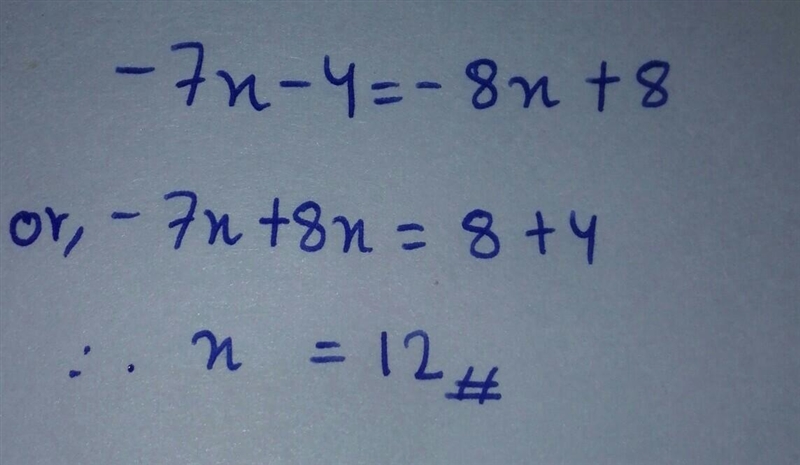 -7x-4=-8x+8
or, -7x+8x = 8+4
∴ x = 12 #